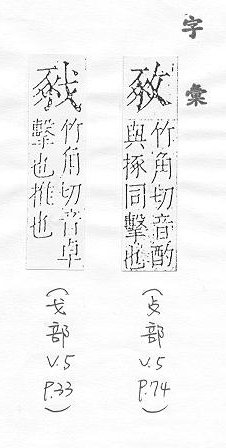 字彙
㪕
竹角切音酌
與㧻同擊也
(攴部
V.5
P.74)
竹角切音卓
擊也推也
(戈部
V.5
P.33)